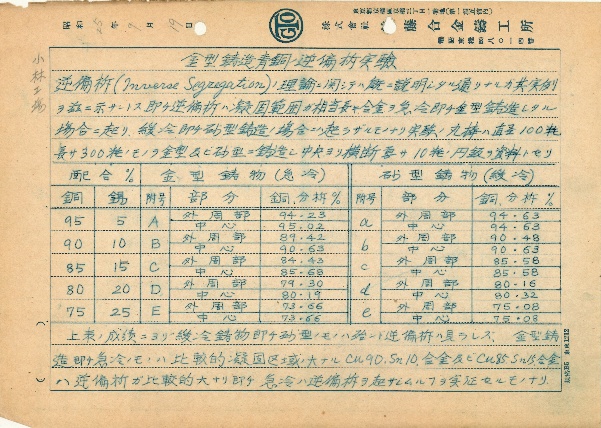 昭和 25年 9月 19日
株式会社 藤合金鋳工所
小林工場
金型鋳造青銅ノ逆偏析実験
逆偏析(Inverse Segregation)ノ理論ニ関シテハ既ニ説明シタル通リナルガ其実例
ヲ茲ニ示サントス即チ逆偏析ハ凝固範囲ガ相当長キ合金ヲ急冷即チ金型鋳造シタル
場合ニ起リ、緩冷即チ砂型鋳造ノ場合ハ起ラザルモノナリ実験ノ丸棒ハ直径100粍
長サ300粍ノモノヲ金型及ビ砂型ニ鋳造シ中央ヨリ横断厚サ10粍ノ円鈑ヲ資料トセリ
配合% 金型鋳物(急冷) 砂型鋳物(緩冷)
銅 錫 附号 部分 銅分析% 附号 部分 銅分析%
95 5 A 外周部 94.23 a 外周部 94.63
中心 95.02 中心 94.63
90 10 B 外周部 89.42 b 外周部 90.48
中心 90.63 中心 90.63
85 15 C 外周部 84.43 c 外周部 85.58
中心 85.68 中心 85.58
80 20 D 外周部 79.30 d 外周部 80.16
中心 80.19 中心 80.32
75 25 E 外周部 73.66 e 外周部 75.08
中心 73.66 中心 75.08
上表ノ成績ニヨリ緩冷鋳物即チ砂型ノモノハ殆ンド逆偏析ハ見ラレズ、金型鋳
造即チ急冷ノモノハ比較的凝固区域ノ大ナルCu90.Sn10.合金及ビCu85Sn15合金
ハ逆偏析ガ比較的大ナリ即チ急冷ハ逆偏析ヲ起サシムル事ヲ実証セルモノナリ